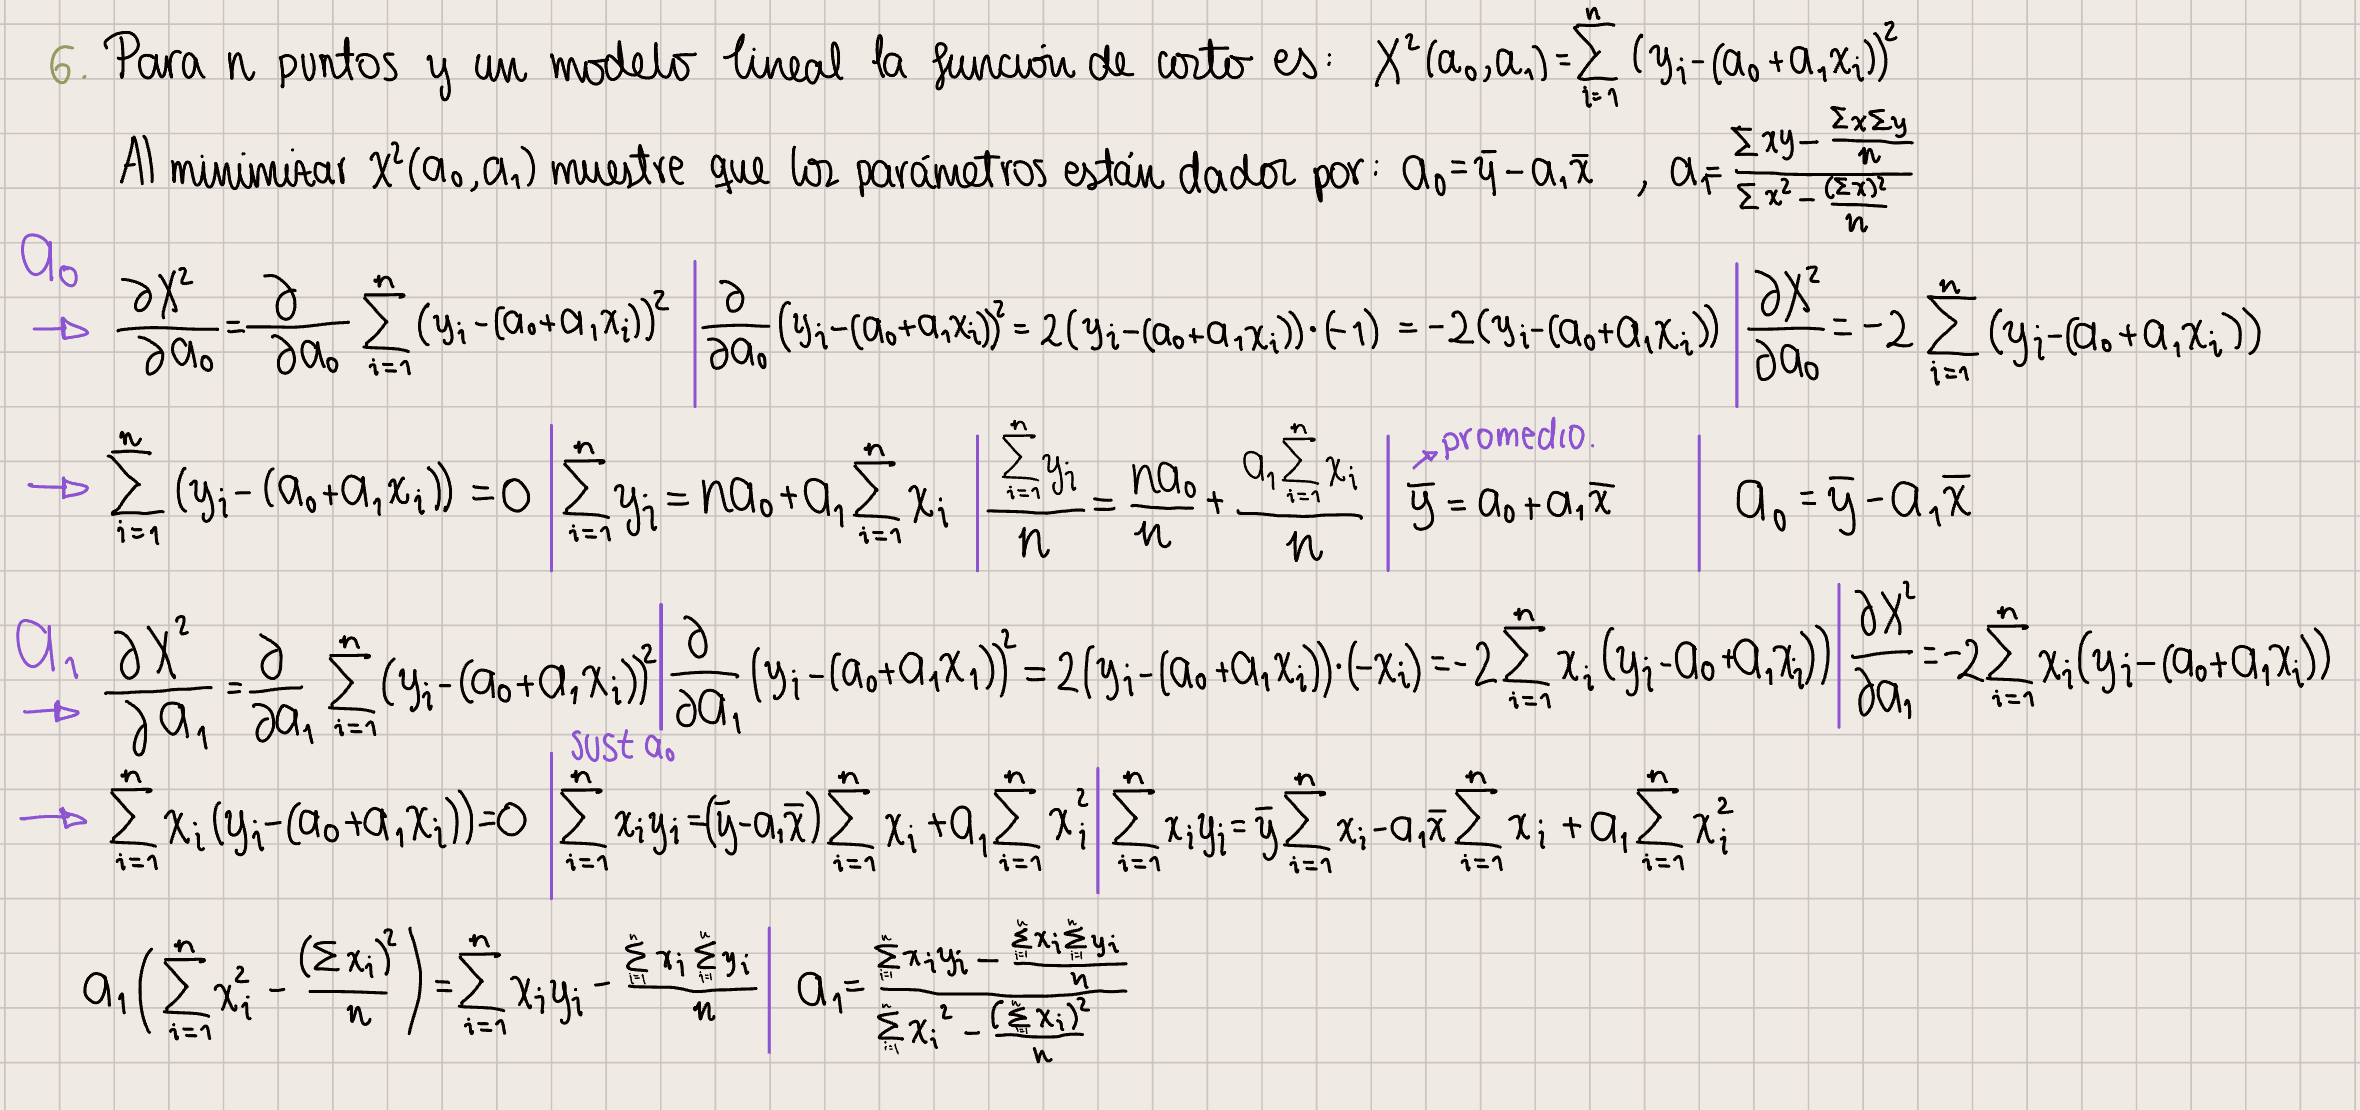 6. Para n puntos y un modelo lineal la función de costo es: X²(a₀,a₁)=∑ᵢ₌₁ⁿ (yᵢ-(a₀+a₁xᵢ))²
Al minimizar X²(a₀,a₁) muestre que los parámetros están dador por: a₀=ȳ-a₁x̄ , a₁=(∑xy-(∑x∑y)/n)/(∑x²-(∑x)²/n)
a₀
→ ∂X²/∂a₀=∂/∂a₀ ∑ᵢ₌₁ⁿ (yᵢ-(a₀+a₁xᵢ))² | ∂/∂a₀ (yᵢ-(a₀+a₁xᵢ))²=2(yᵢ-(a₀+a₁xᵢ))·(-1) = -2(yᵢ-(a₀+a₁xᵢ)) | ∂X²/∂a₀=-2 ∑ᵢ₌₁ⁿ (yᵢ-(a₀+a₁xᵢ))
promedio.
→ ∑ᵢ₌₁ⁿ (yᵢ-(a₀+a₁xᵢ))=0 | ∑ᵢ₌₁ⁿ yᵢ=na₀+a₁∑ᵢ₌₁ⁿ xᵢ | (∑ᵢ₌₁ⁿ yᵢ)/n=na₀/n+(a₁∑ᵢ₌₁ⁿ xᵢ)/n | ȳ=a₀+a₁x̄ | a₀=ȳ-a₁x̄
a₁
→ ∂X²/∂a₁=∂/∂a₁ ∑ᵢ₌₁ⁿ (yᵢ-(a₀+a₁xᵢ))² | ∂/∂a₁ (yᵢ-(a₀+a₁x₁))²=2(yᵢ-(a₀+a₁xᵢ))·(-xᵢ)=-2∑ᵢ₌₁ⁿ xᵢ(yᵢ-a₀+a₁xᵢ)) | ∂X²/∂a₁=-2∑ᵢ₌₁ⁿ xᵢ(yᵢ-(a₀+a₁xᵢ))
sust a₀
→ ∑ᵢ₌₁ⁿ xᵢ(yᵢ-(a₀+a₁xᵢ))=0 | ∑ᵢ₌₁ⁿ xᵢyᵢ=(ȳ-a₁x̄)∑ᵢ₌₁ⁿ xᵢ+a₁∑ᵢ₌₁ⁿ xᵢ² | ∑ᵢ₌₁ⁿ xᵢyᵢ=ȳ∑ᵢ₌₁ⁿ xᵢ-a₁x̄∑ᵢ₌₁ⁿ xᵢ+a₁∑ᵢ₌₁ⁿ xᵢ²
a₁(∑ᵢ₌₁ⁿ xᵢ²-(∑xᵢ)²/n)=∑ᵢ₌₁ⁿ xᵢyᵢ-(∑ᵢ₌₁ⁿ xᵢ∑ᵢ₌₁ⁿ yᵢ)/n | a₁=(∑ᵢ₌₁ⁿ xᵢyᵢ-(∑ᵢ₌₁ⁿ xᵢ∑ᵢ₌₁ⁿ yᵢ)/n)/(∑ᵢ₌₁ⁿ xᵢ²-(∑ᵢ₌₁ⁿ xᵢ)²/n)